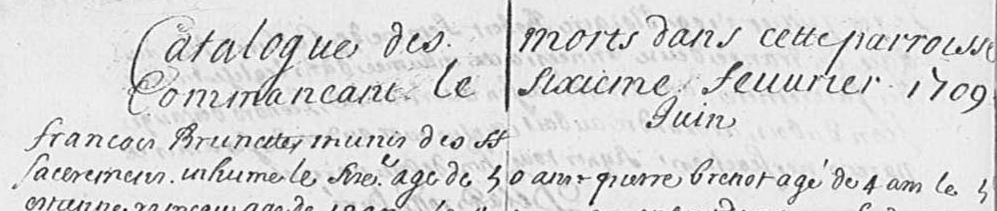 Catalogue des morts dans cette parroisse
Commancant le sixieme feuurier 1709
Juin
francois Brunette munis des sst
sacremens inhume le 6xe age de 50 ans pierre brenot agé de 4 ans le 5
estienne age de